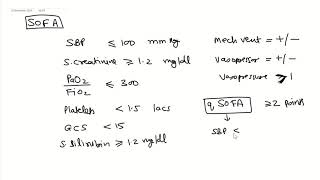 SOFA
SBP ≤ 100 mm Hg
S. creatinine ≥ 1.2 mg/dl
PaO2
FiO2
≤ 300
Platelets < 1.5 lacs
GCS < 15
S. bilirubin ≥ 1.2 mg/dl
Mech vent = +/-
Vasopressor = +/-
Vasopressors > 1
q SOFA ≥ 2 points
SBP ≤